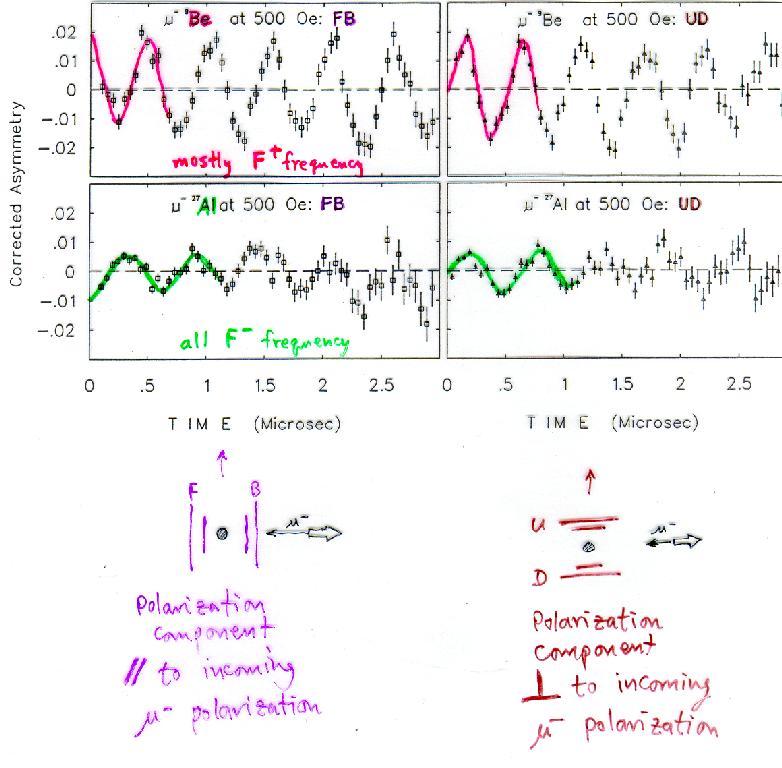 μ⁻ ⁹Be at 500 Oe: FB
μ⁻ ⁹Be at 500 Oe: UD
.02
.01
0
-.01
-.02
mostly F⁺ frequency
Corrected Asymmetry
μ⁻ ²⁷Al at 500 Oe: FB
μ⁻ ²⁷Al at 500 Oe: UD
.02
.01
0
-.01
-.02
all F⁻ frequency
0 .5 1 1.5 2 2.5
0 .5 1 1.5 2 2.5
TIME (Microsec)
TIME (Microsec)
F B
μ⁻
Polarization
component
// to incoming
μ⁻ polarization
U
μ⁻
D
Polarization
component
⊥ to incoming
μ⁻ polarization